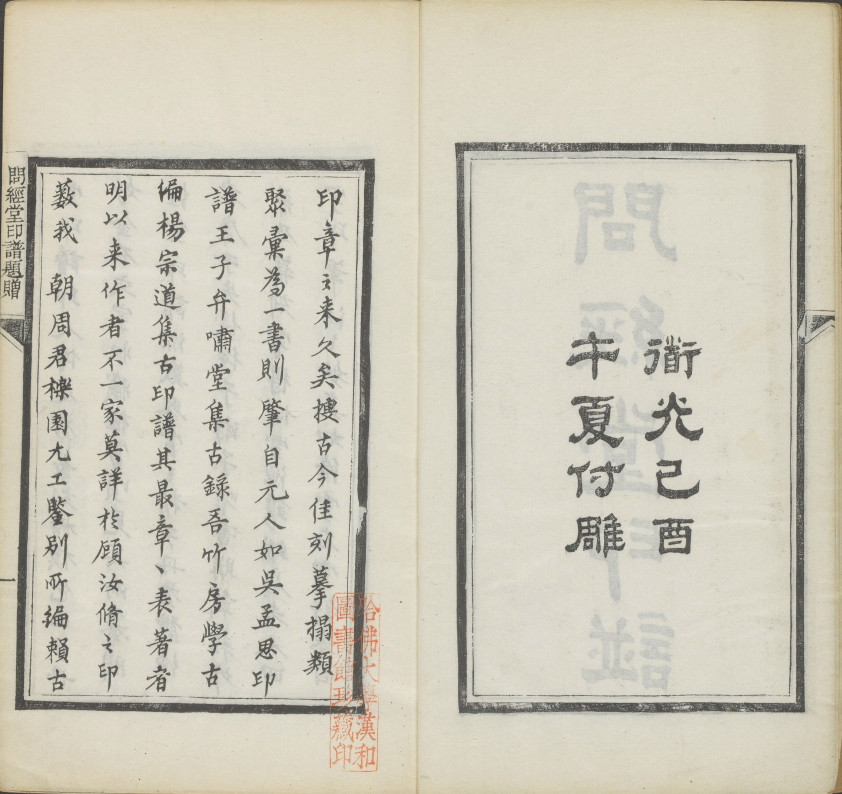 衜光己酉
午夏付雕
印章〻来久矣搜古今佳刻摹搨類
聚彙為一書則肇自元人如吳孟思印
譜王子弁嘯堂集古錄吾竹房學古
編楊宗道集古印譜其最章〻表著者
明以来作者不一家莫詳扵顧汝脩〻印
藪我 朝周君櫟園尤工鑒别所編賴古
問經堂印譜題贈
一
哈佛大學漢和
圖書館珍藏印
問經堂印譜